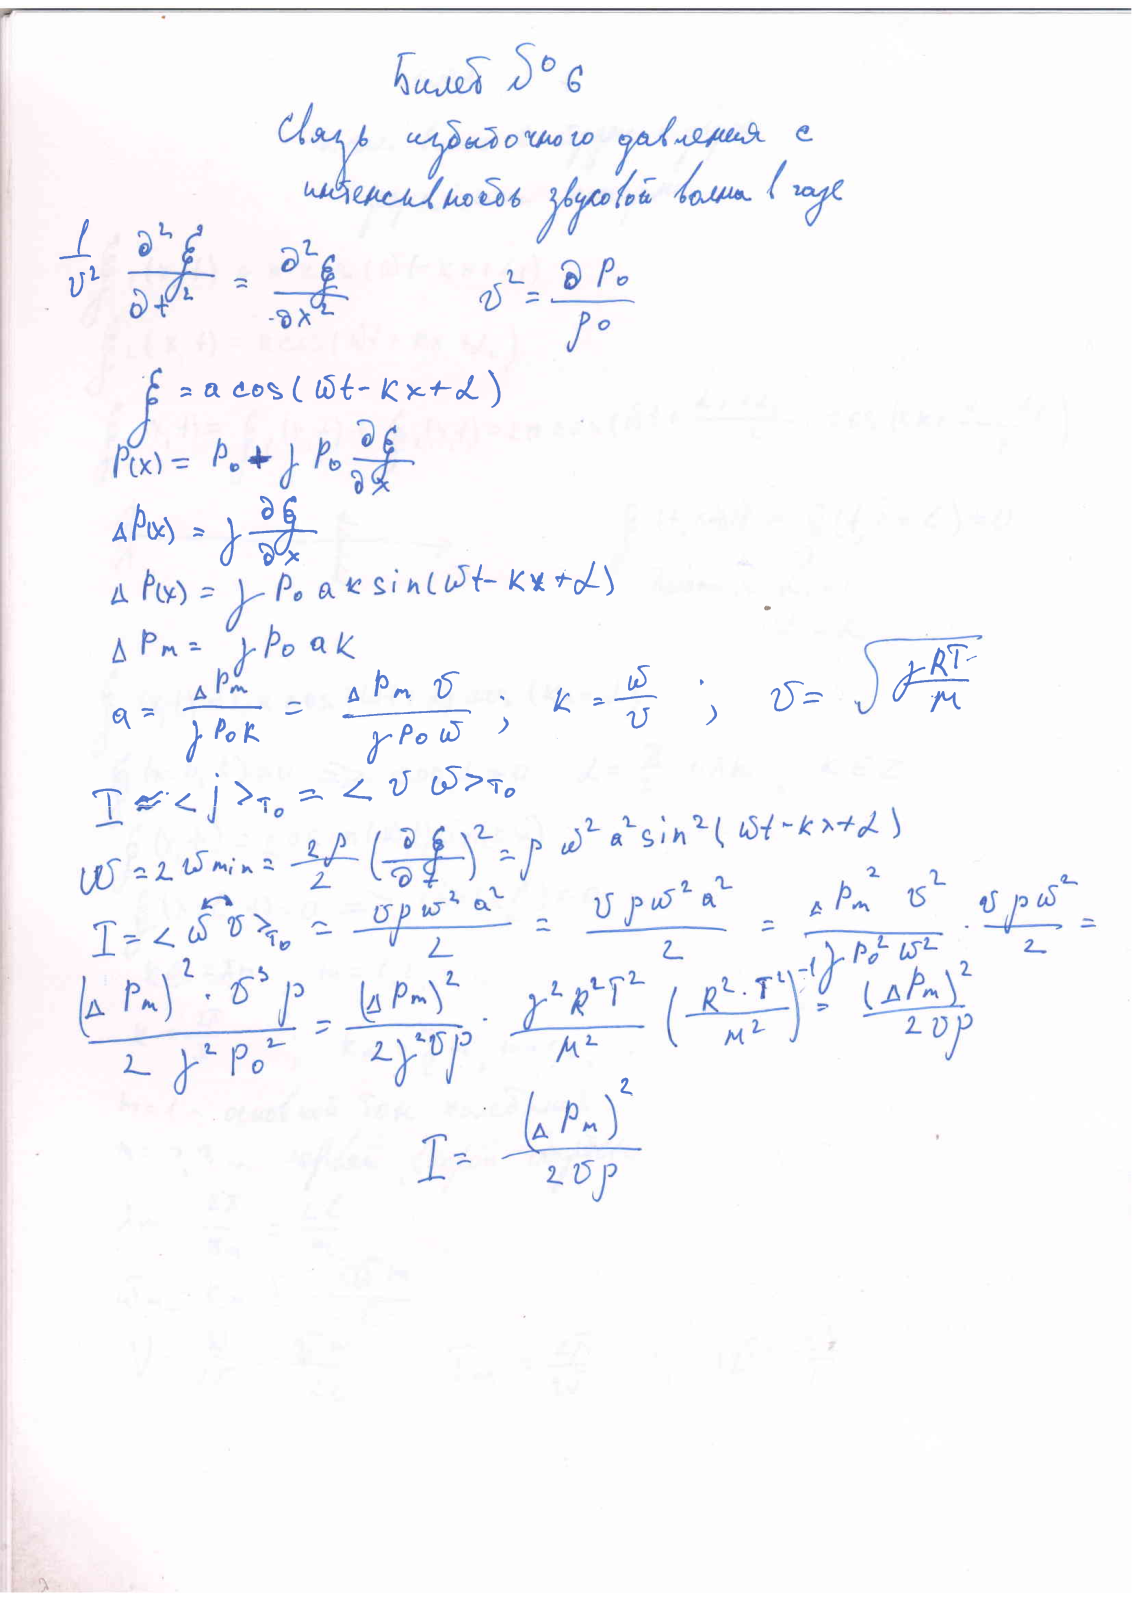 Билет № 6
Связь избыточного давления с
интенсивность звуковой волны в газе
1/v² ∂²ξ/∂t² = ∂²ξ/∂x²    v² = ∂P₀/ρ₀
ξ = a cos(ωt - kx + α)
P(x) = P₀ + γ P₀ ∂ξ/∂x
ΔP(x) = γ ∂ξ/∂x
ΔP(x) = γ P₀ a k sin(ωt - kx + α)
ΔPm = γ P₀ a k
a = ΔPm/(γ P₀ k) = ΔPm v/(γ P₀ ω) ; k = ω/v ; v = √(γRT/M)
I ≈ <j>T₀ = <v ω>T₀
ω = 2 ωmin = 2ρ/2 (∂ξ/∂t)² = ρ ω² a² sin²(ωt - kx + α)
I = <ω v>T₀ = vρω²a²/2 = vρω²a²/2 = ΔPm² v²/(γ P₀² ω²) · vρω²/2 =
(ΔPm)² · v³ρ/(2 γ² P₀²) = (ΔPm)²/(2γ²vρ) · γ²R²T²/M² (R²·T²/M²)⁻¹ = (ΔPm)²/(2vρ)
I = (ΔPm)²/(2vρ)